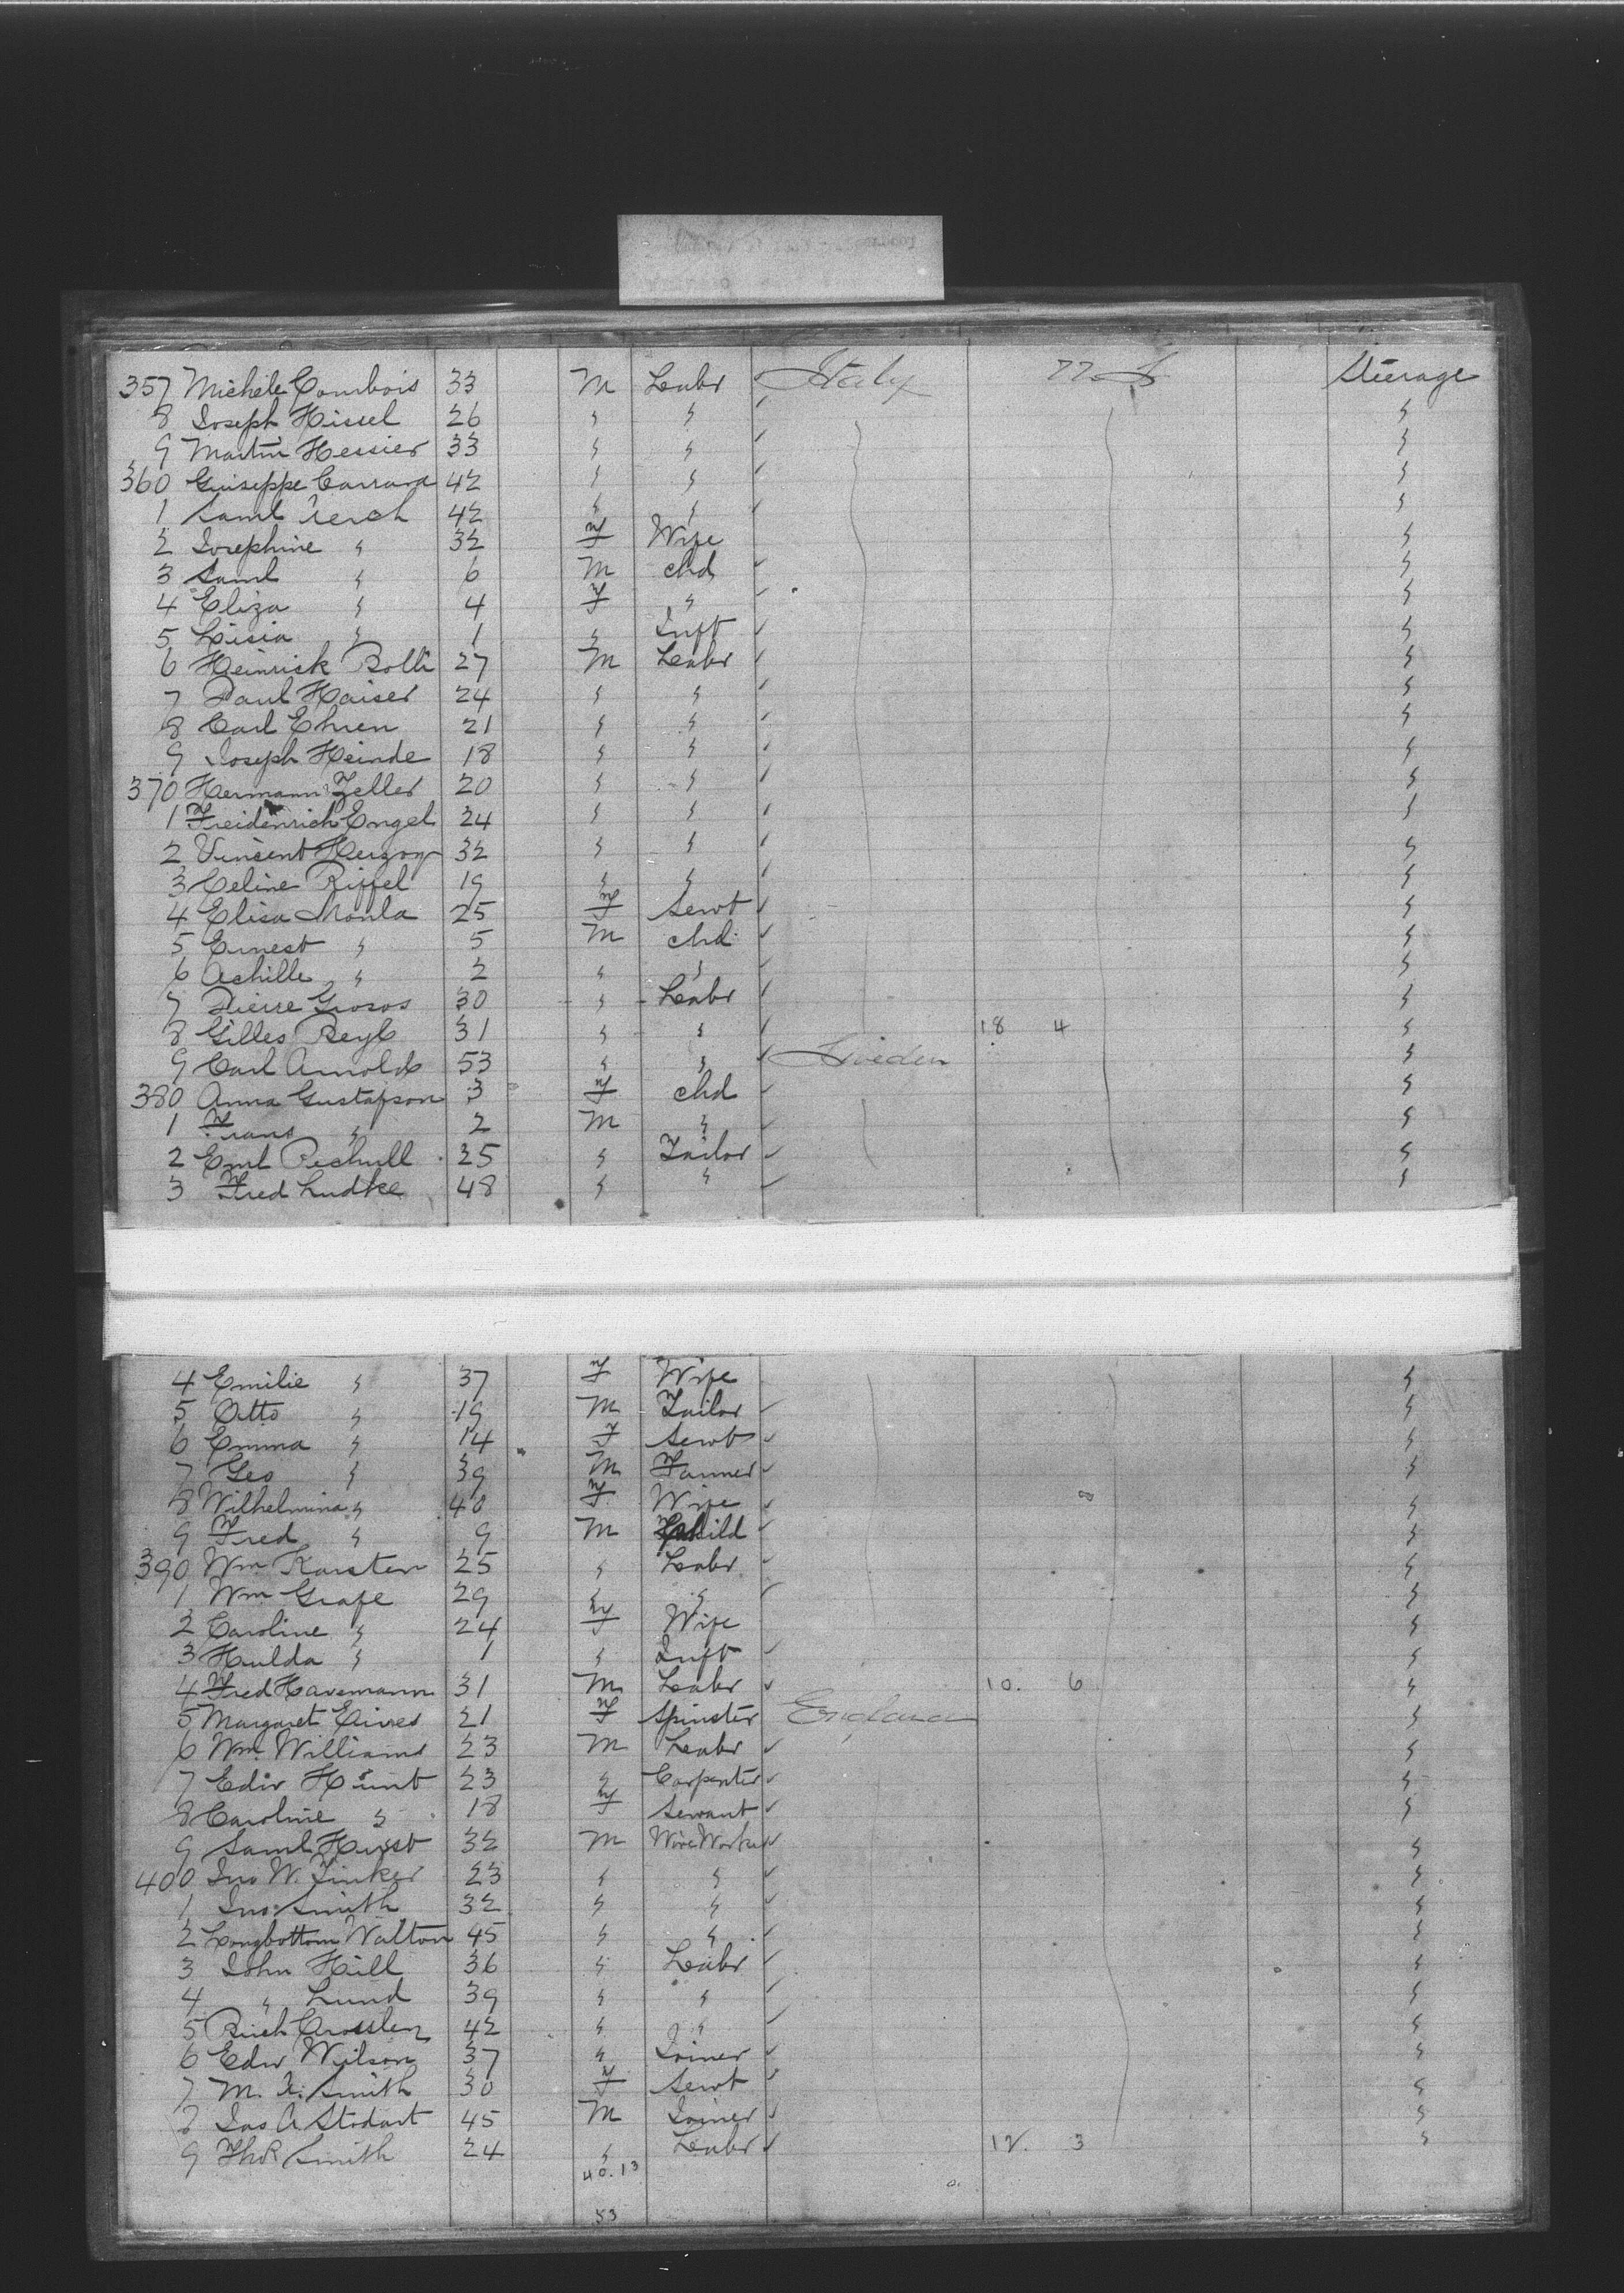 357 Michele Combois 33 M Labr Italy U.S. Steerage
8 Joseph Hissel 26 " " "
9 Martin Hessier 33 " " "
360 Guiseppe Carrara 42 " " "
1 Saml 42 " " "
2 Josephine " 32 F Wife "
3 Saml " 6 M chd "
4 Eliza " 4 F " "
5 Lisia " 1 " Inft "
6 Heinrick Bolli 27 M Labr "
7 Paul Haiser 24 " " "
8 Carl Ehren 21 " " "
9 Joseph Heinde 18 " " "
370 Hermann Zeller 20 " " "
1 Freidenrich Engel 24 " " "
2 Vincent Herzog 32 " " "
3 Celine Riffel 19 " " "
4 Elisa Monla 25 F Servt "
5 Ernest " 5 M chd "
6 Achille " 2 " " "
7 Pierre Grosos 30 " Labr "
8 Gilles 31 " " 18 4 "
9 Carl Arnold 53 " " Sweden "
380 Anna Gustafson 3 F chd "
1 Frans " 2 M " "
2 Emil Pechull 25 " Tailor "
3 Fred Ludke 48 " " "
4 Emilie " 37 F Wife "
5 Otto " 19 M Tailor "
6 Emma " 14 F Servt "
7 Geo " 39 M Farmer "
8 Wilhelmina " 40 F Wife "
9 Fred " 9 M Child "
390 Wm Karsten 25 " Labr "
1 Wm Grafe 29 " " "
2 Caroline " 24 F Wife "
3 Hulda " 1 " Inft "
4 Fred Havemann 31 M Labr 10. 6 "
5 Margaret 21 F Spinster England "
6 Wm. Williams 23 M Labr "
7 Edw Hunt 23 " Carpenter "
8 Caroline " 18 F Servant "
9 Saml Hurst 32 M Wire Worker "
400 Jno W. Tinker 23 " " "
1 Jno Smith 32 " " "
2 Longbottom Walton 45 " " "
3 John Hill 36 " Labr "
4 " Lund 39 " " "
5 Rich Crossley 42 " " "
6 Edw Wilson 37 " Joiner "
7 M. Smith 30 F Servt "
8 Jas A Stodart 45 M Joiner "
9 Thos Smith 24 " Labr 12. 3 "
40.13
53